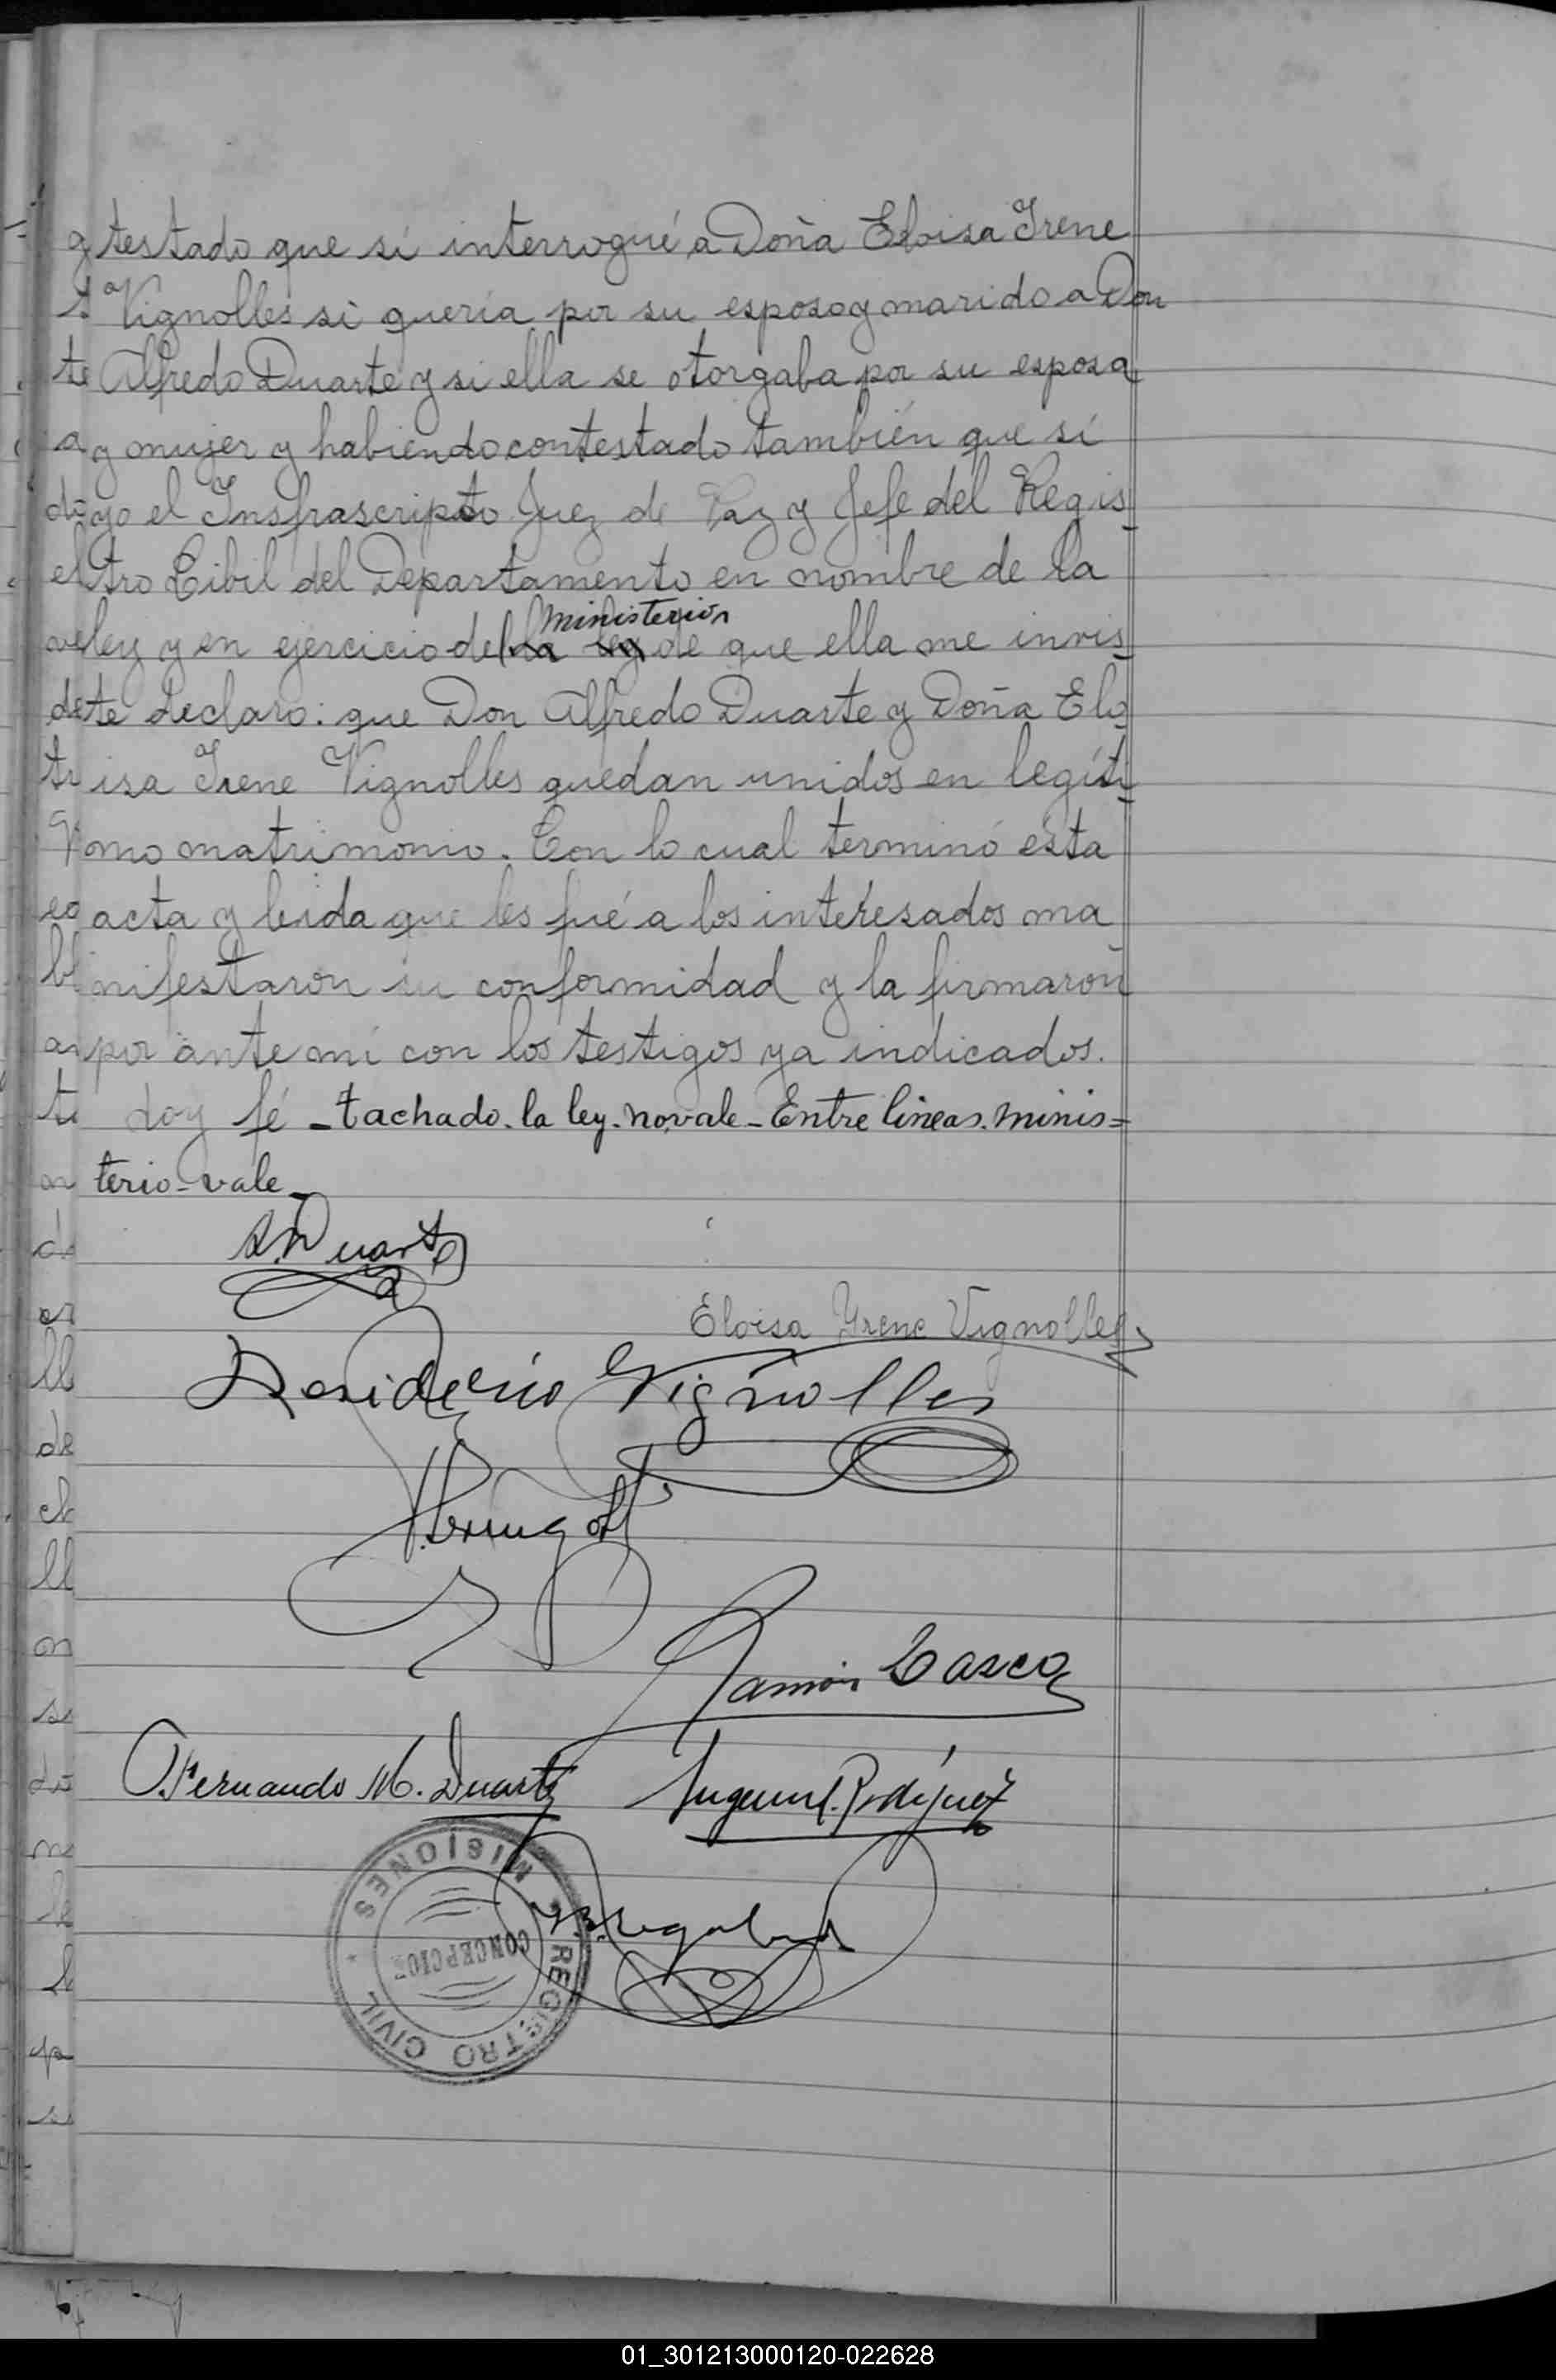 testado que sí interrogué a Doña Eloisa Irene
Vignolles si quería por su esposo y marido a Don
Alfredo Duarte y si ella se otorgaba por su esposa
y mujer y habiendo contestado también que sí
yo el Insfrascripto Juez de Paz y Jefe del Regis
tro Cibil del Departamento en nombre de la
ministerio
ley y en ejercicio del la ley de que ella me invis
te declaro: que Don Alfredo Duarte y Doña Elo
isa Irene Vignolles quedan unidos en legíti
mo matrimonio. Con lo cual terminó ésta
acta y leida que les fué a los interesados ma
nifestaron su conformidad y la firmaron
por ante mí con los testigos ya indicados.
doy fé - tachado. la ley. no vale - Entre lineas. minis=
terio - vale -
A. Duarte
Eloisa Yrene Vignolles
Desiderio Vignolles
Ramón Lasco
Fernando M. Duarte
Rodríguez
MISIONES
CONCEPCION
REGISTRO CIVIL
01_301213000120-022628